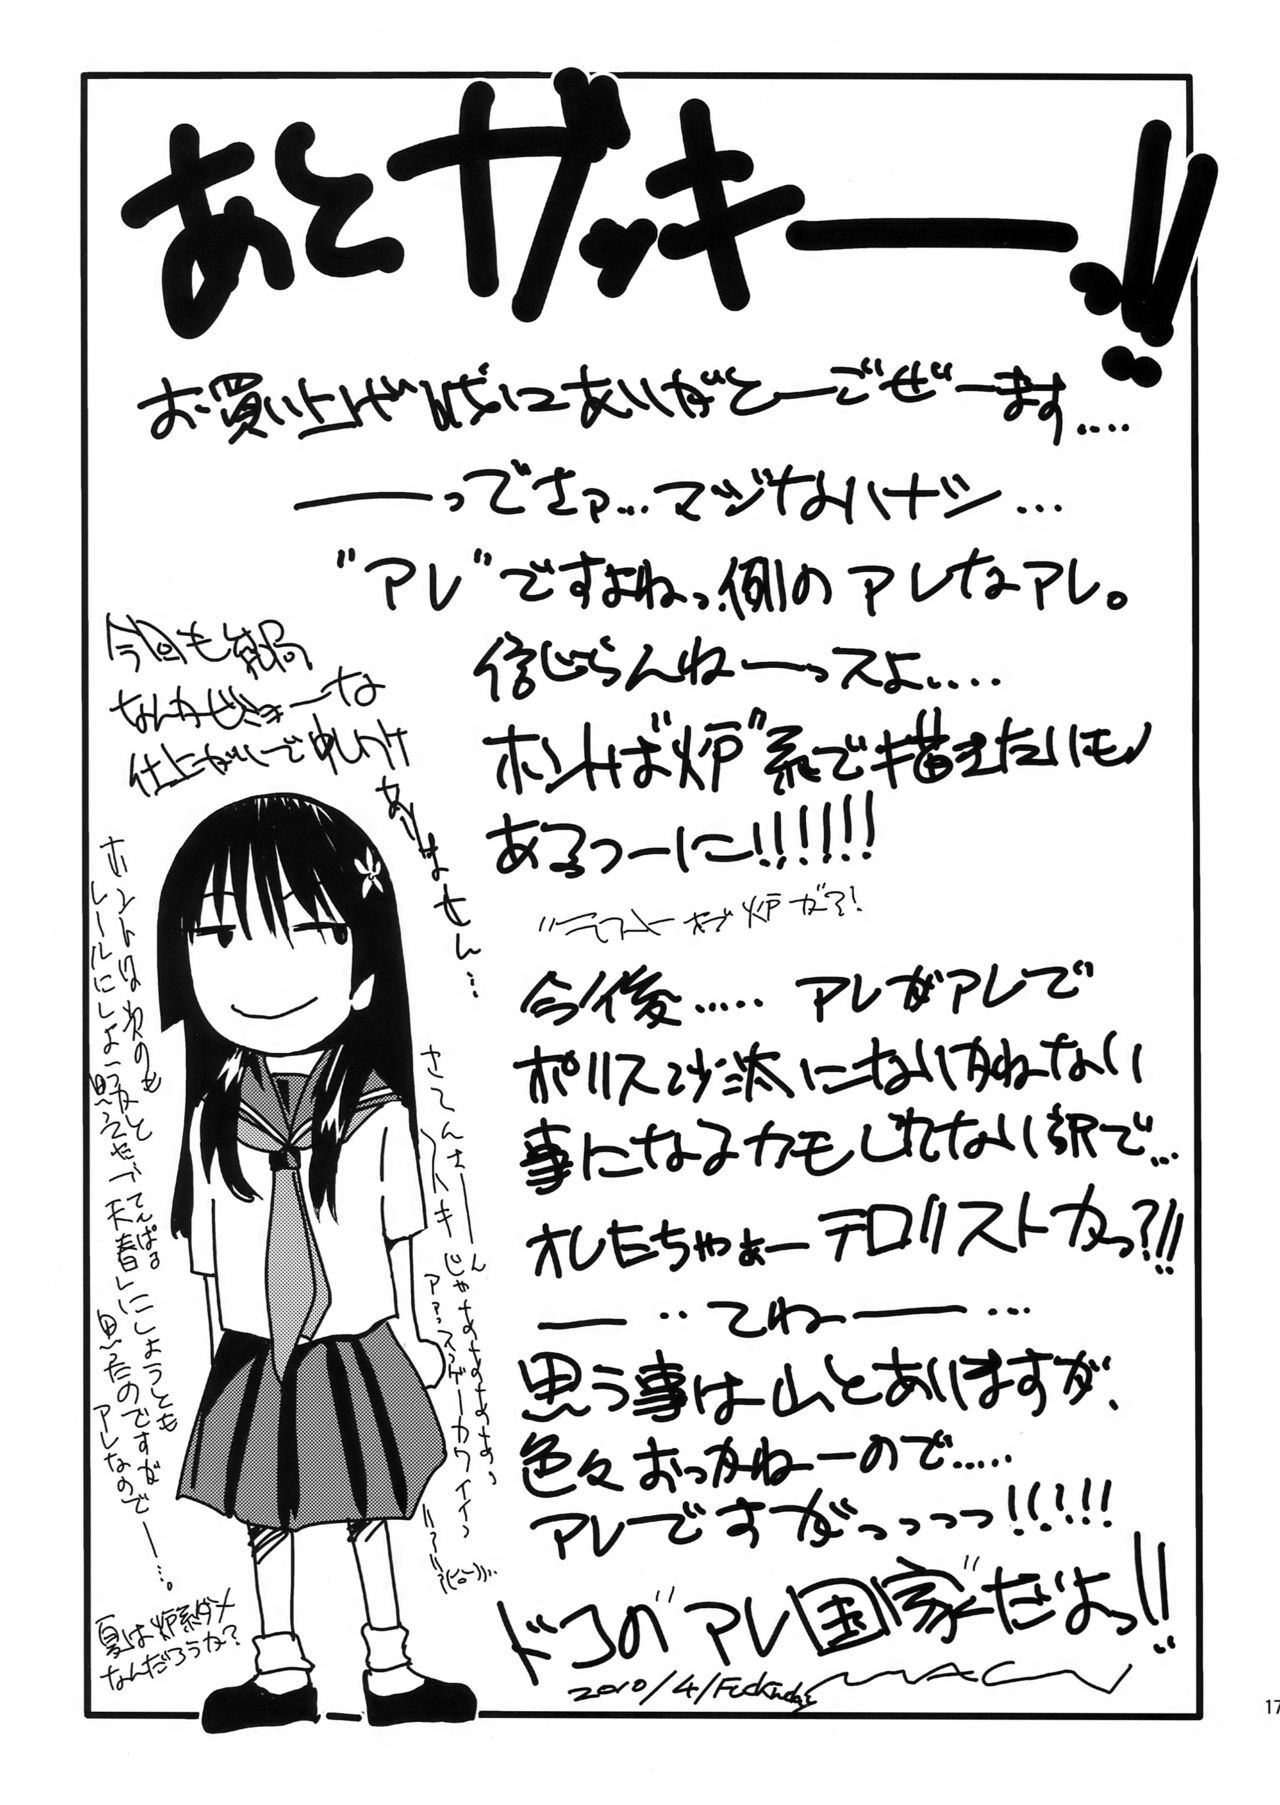 あとガッキー!!
お買い上げ誠にありがとーごぜーます....
――ってさァ...マジなハナシ...
"アレ"ですよねっ、例のアレなアレ。
信じらんねーっスよ....
ホントは"炉"系で描きたいもん
あるつーに!!!!!!
今後..... アレがアレで
ポリス沙汰になりかねない
事になるカモしれない訳で...
オレたちゃぁーテロリストかっ?!!
――..てねー――...
思う事は山とありますが、
色々おっかねーので.....
アレですがっっっっ!!!!!
ドコの"アレ国家"だよっ!!
2010/4/
今回も結局
なんかびみょーな
仕上がりで申しわけ
ありません...
さてんさーん
じゃなな
スンゲーカワイイ
ホントは次のも
レールにしようかなと
思ってたが
てんぱる
天春にしようとも
思ったのですが
アレなのでー...。
夏は炉系ダメ
なんだろうか?
17